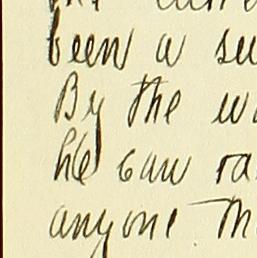 been a su
By the w
he can ra
anyone Th